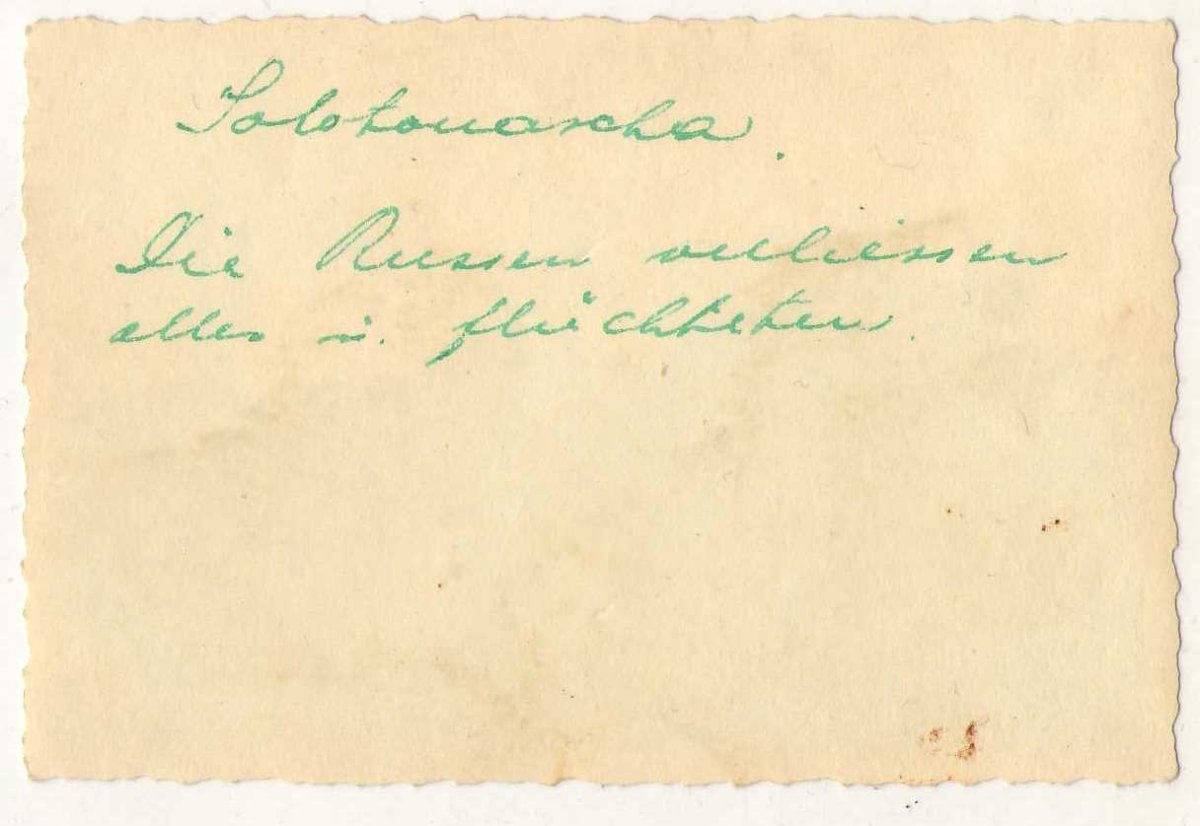 Solotonascha.
Die Russen verliessen
alles u. flüchteten.